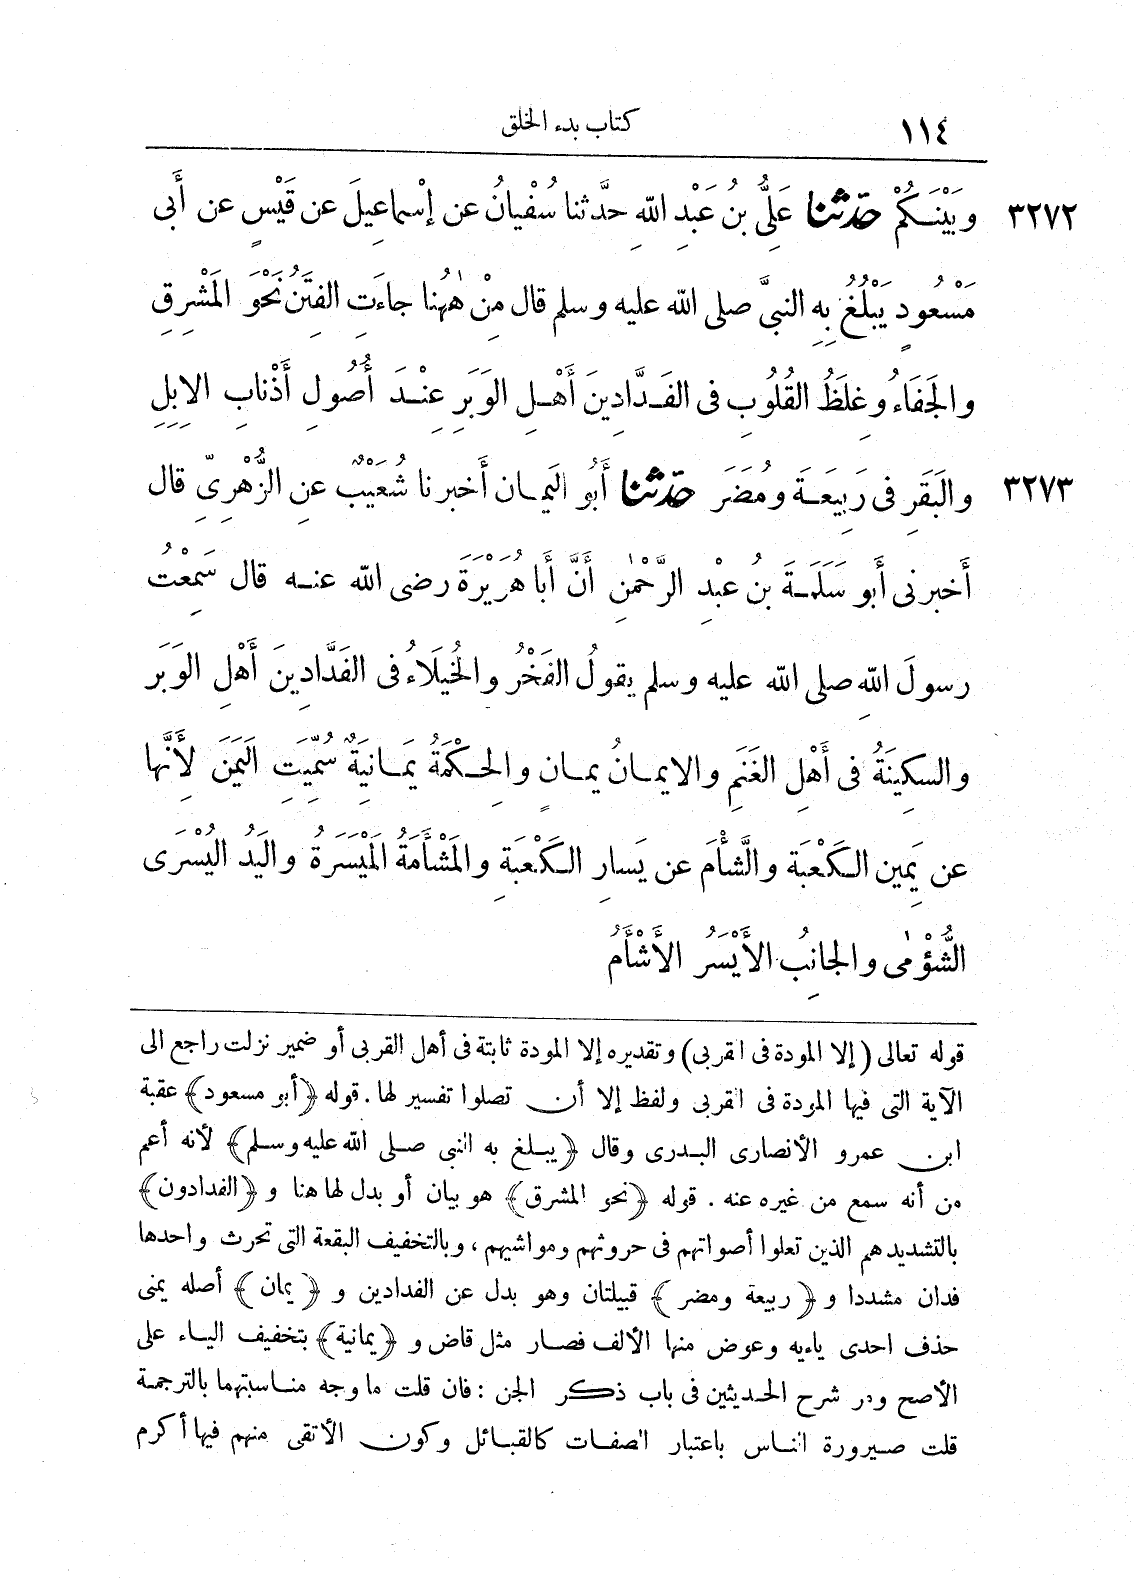 ١١٤ كتاب بدء الخلق
٣٢٧٢ وَبَيْنَكُمْ حَدَّثَنَا عَلِيُّ بنُ عَبْدِ اللهِ حدَّثنا سُفْيانُ عن إِسْماعِيلَ عن قَيْسٍ عن أَبى
مَسْعُودٍ يَبْلُغُ بِهِ النبىَّ صلى الله عليه وسلم قال مِنْ هٰهُنا جاءَتِ الفِتَنُ نَحْوَ المَشْرِقِ
والجَفَاءُ وغِلَظُ القُلُوبِ فى الفَدَّادِينَ أَهْلِ الوَبَرِ عِنْدَ أُصُولِ أَذْنابِ الإِبِلِ
٣٢٧٣ والبَقَرِ فى رَبِيعَةَ ومُضَرَ حدَّثنا أَبُو اليَمانِ أَخبرنا شُعَيْبٌ عنِ الزُّهْرِىِّ قال
أَخبرنى أَبو سَلَمَةَ بنُ عبْدِ الرَّحْمٰنِ أَنَّ أَبا هُرَيْرَةَ رضى الله عنه قال سَمِعْتُ
رسولَ اللهِ صلى الله عليه وسلم يقولُ الفَخْرُ والخُيَلَاءُ فى الفَدَّادِينَ أَهْلِ الوَبَرِ
والسكِينَةُ فى أَهْلِ الغَنَمِ والايمانُ يمانٍ والحِكْمَةُ يَمانِيَةٌ سُمِّيَتِ اليَمَنَ لِأَنَّها
عن يَمِينِ الكَعْبَةِ والشَّأْمَ عن يَسارِ الكَعْبَةِ والمَشْأَمَةُ المَيْسَرَةُ واليَدُ اليُسْرَى
الشُّؤْمٰى والجانِبُ الأَيْسَرُ الأَشْأَمُ
قوله تعالى (إلا المودة فى القربى) وتقديره إلا المودة ثابتة فى أهل القربى أو ضمير نزلت راجع الى
الآية التى فيها المودة فى القربى ولفظ إلا أن تصلوا تفسير لها. قوله ﴿أبو مسعود﴾ عقبة
ابن عمرو الأنصارى البدرى وقال ﴿يبلغ به النبى صلى الله عليه وسلم﴾ لأنه أعم
من أنه سمع من غيره عنه. قوله ﴿نحو المشرق﴾ هو بيان أو بدل لها هنا و ﴿الفدادون﴾
بالتشديد هم الذين تعلوا أصواتهم فى حروثهم ومواشيهم، وبالتخفيف البقعة التى تحرث واحدها
فدان مشددا و ﴿ربيعة ومضر﴾ قبيلتان وهو بدل عن الفدادين و ﴿يمان﴾ أصله يمنى
حذف احدى ياءيه وعوض منها الألف فصار مثل قاض و ﴿يمانية﴾ بتخفيف الياء على
الأصح ومر شرح الحديثين فى باب ذكر الجن: فان قلت ما وجه مناسبتهما بالترجمة
قلت صيرورة الناس باعتبار الصفات كالقبائل وكون الأتقى منهم فيها أكرم